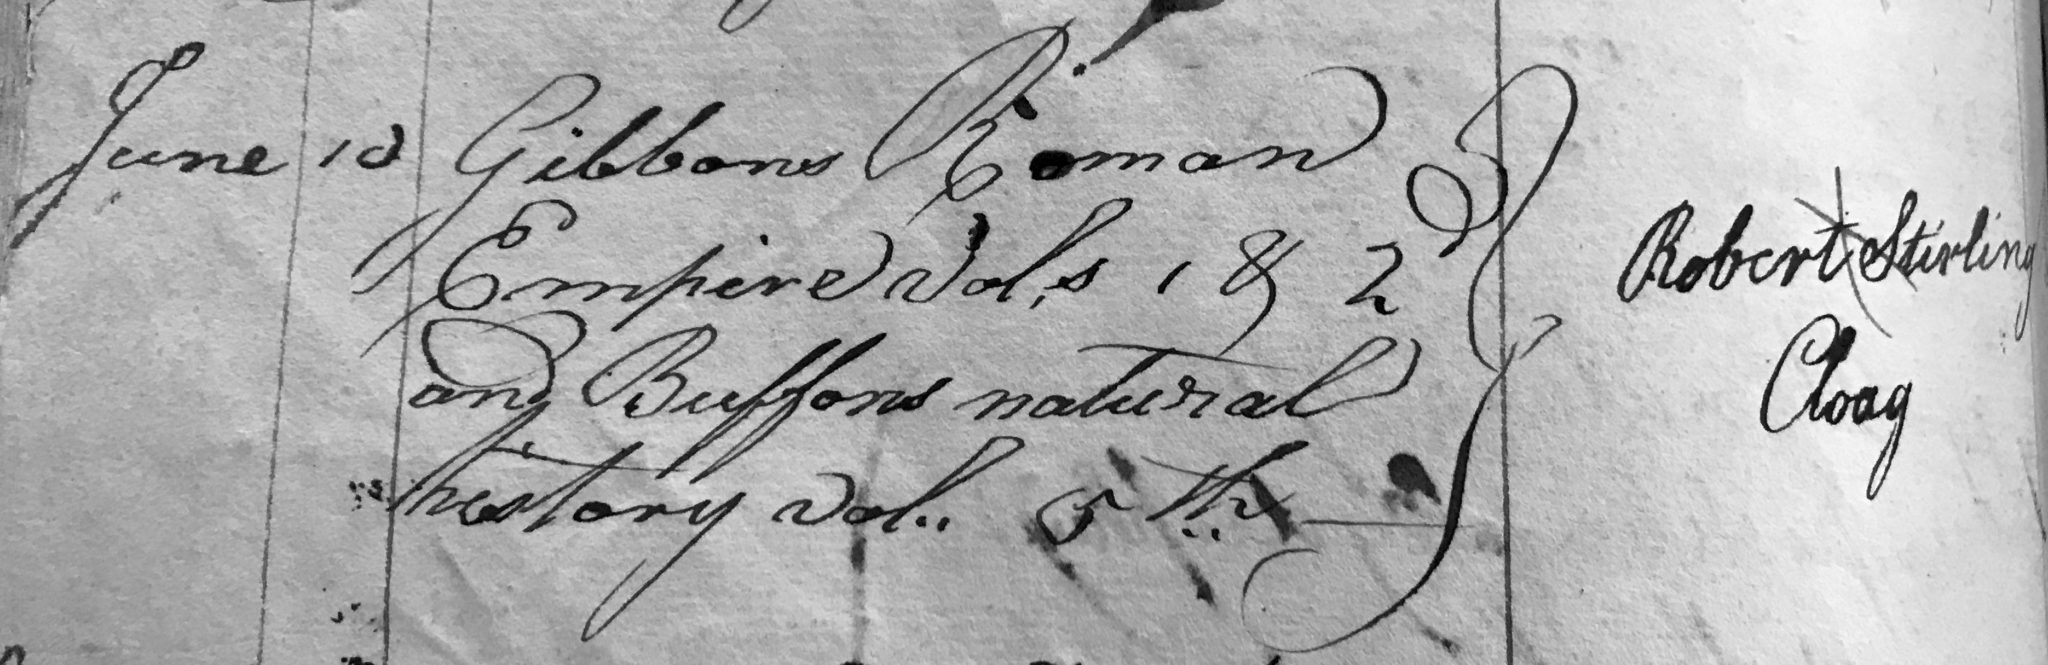 June 10 Gibbons Roman
Empire Vol.s 1 & 2d
and Buffons natural
history Vol.. 5th
Robert Stirling
Cloag